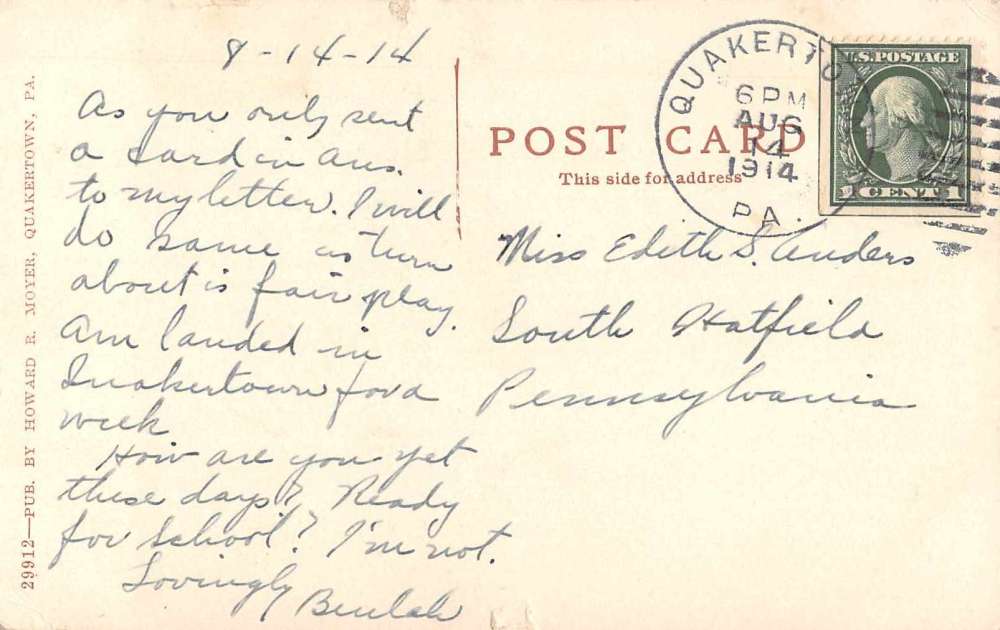 8-14-14
As you only sent
a card in ans.
to my letter. I will
do same as turn
about is fair play.
Am landed in
Quakertown for a
week
How are you yet
these days? Ready
for school? I'm not.
Lovingly Beulah
POST CARD
This side for address
QUAKERTOWN
6 PM
AUG
14
1914
PA.
U.S. POSTAGE
1 CENT 1
Miss Edith S. Anders
South Hatfield
Pennsylvania
29912—PUB. BY HOWARD R. MOYER, QUAKERTOWN, PA.